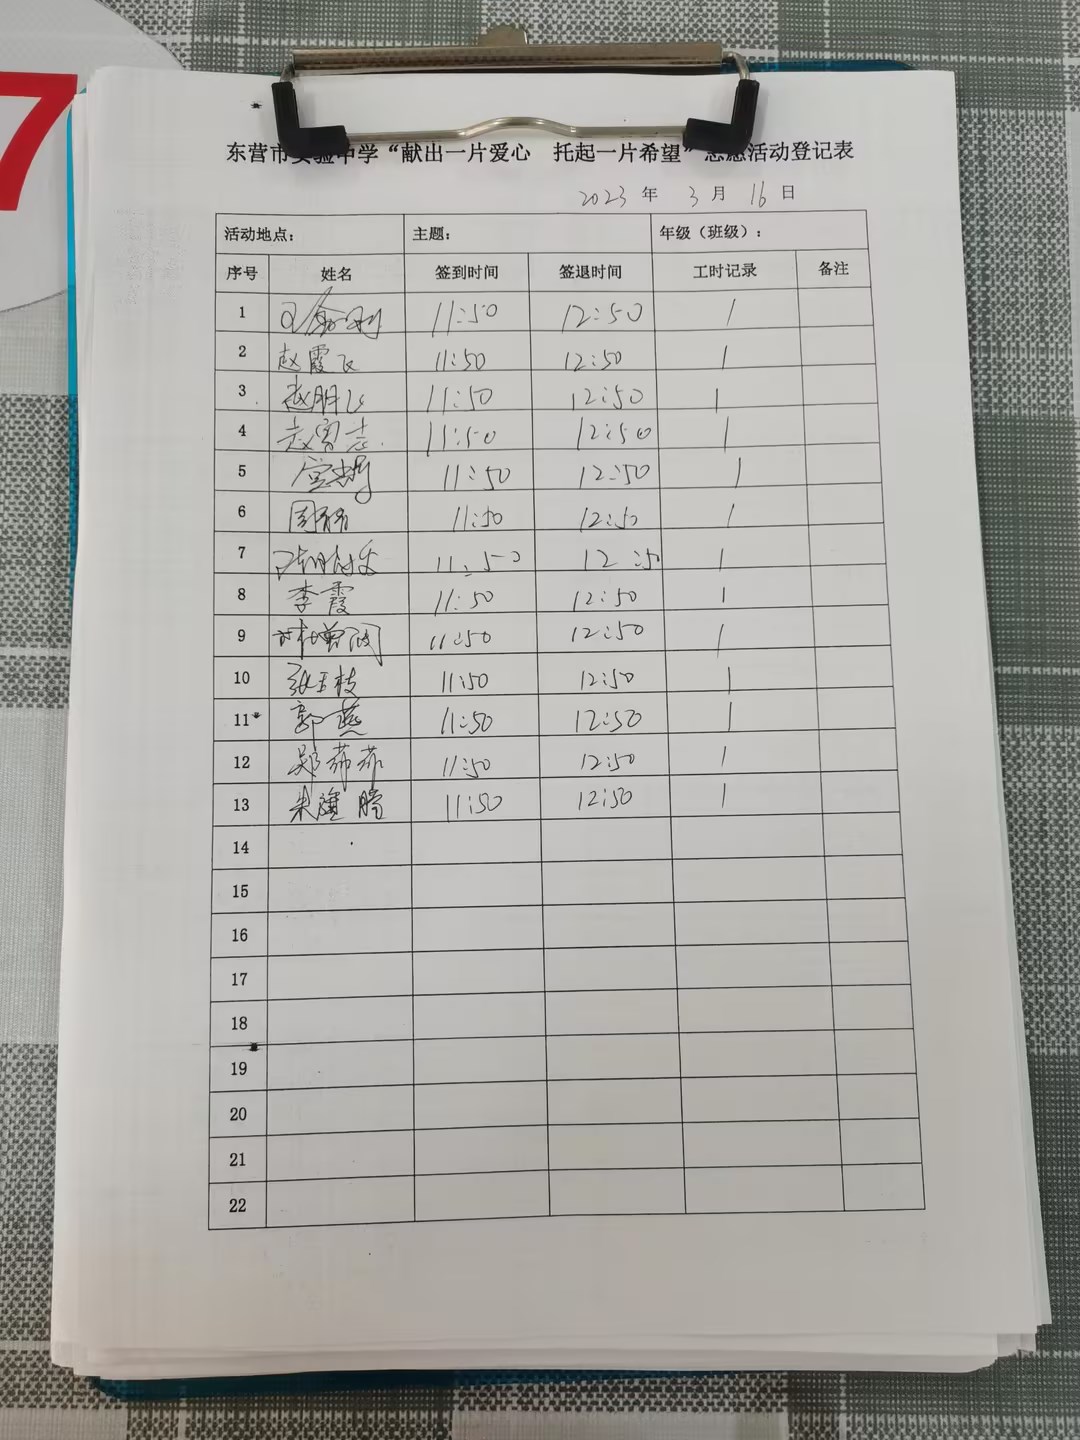 7
东营市实验中学“献出一片爱心 托起一片希望”志愿活动登记表
2023 年 3 月 16 日
活动地点： 主题： 年级（班级）：
序号 姓名 签到时间 签退时间 工时记录 备注
1 11:50 12:50 1
2 赵霞飞 11:50 12:50 1
3 赵朋飞 11:50 12:50 1
4 11:50 12:50 1
5 11:50 12:50 1
6 11:50 12:50 1
7 11:50 12:50 1
8 李霞 11:50 12:50 1
9 11:50 12:50 1
10 张玉枝 11:50 12:50 1
11 郭燕 11:50 12:50 1
12 郑茹茹 11:50 12:50 1
13 11:50 12:50 1
14
15
16
17
18
19
20
21
22